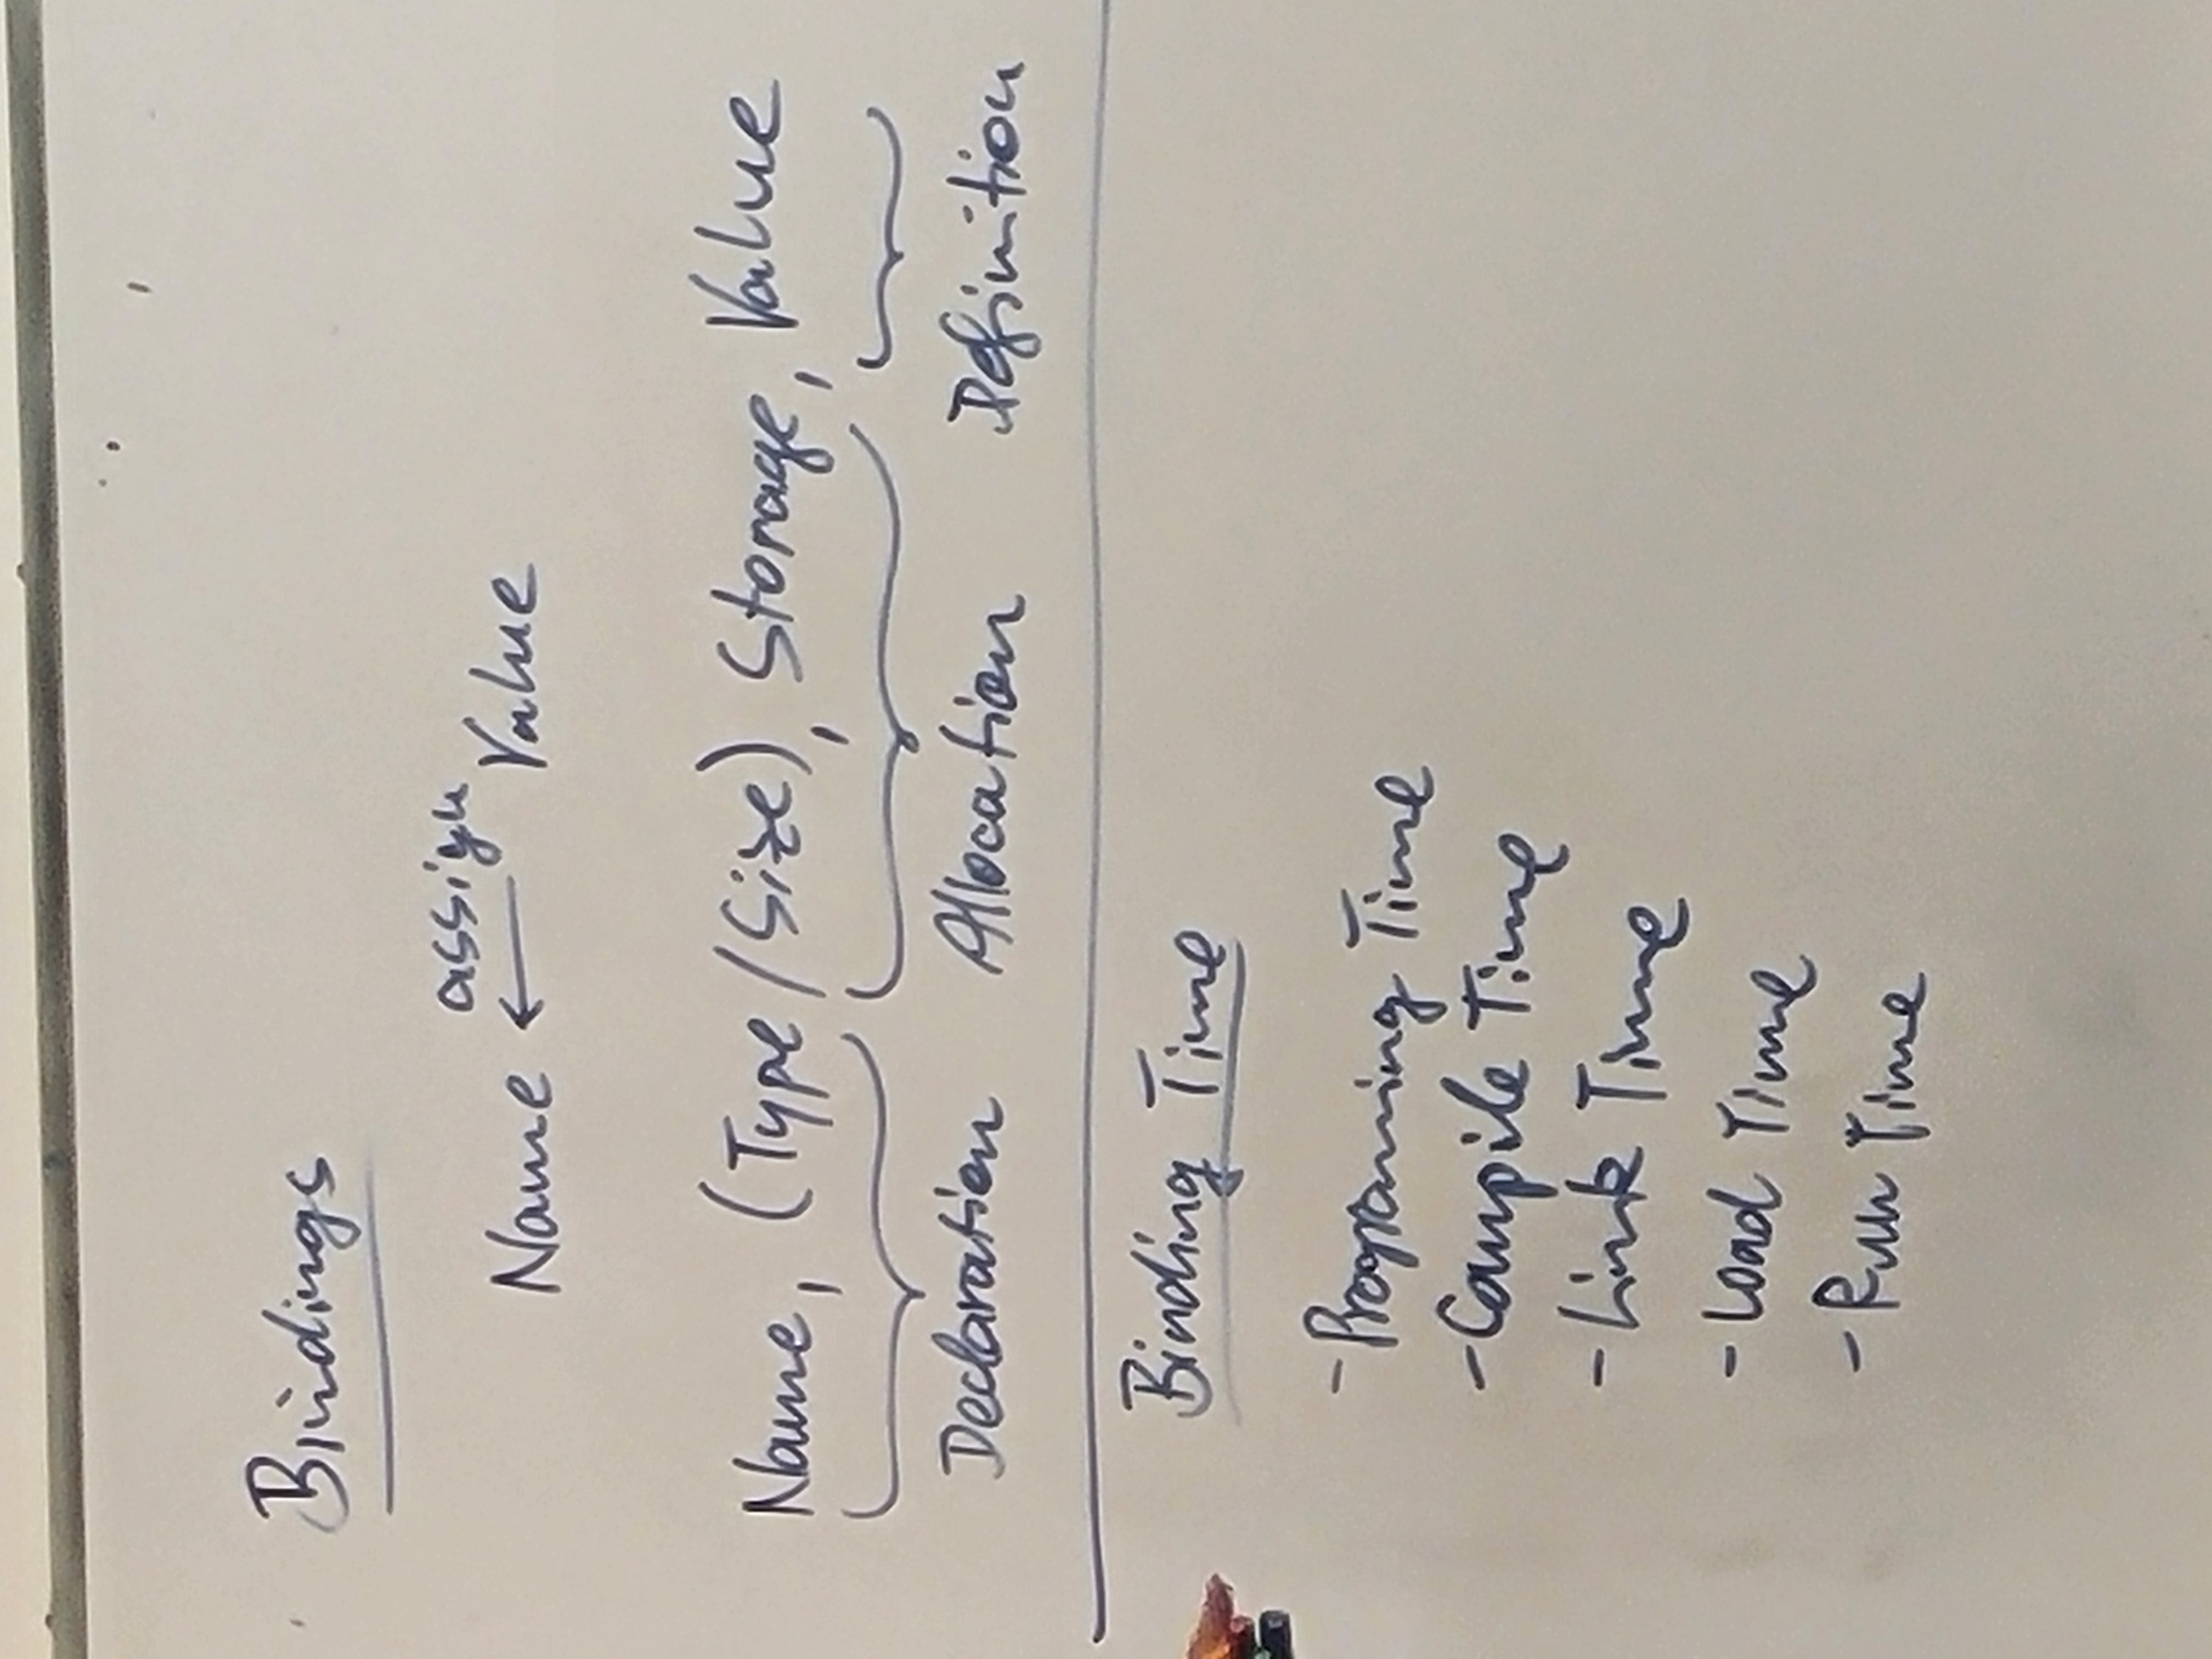 Bindings
assign
Name ← Value
Name, (Type/Size), Storage, Value
Declaration Allocation Definition
Binding Time
- Programing Time
- Compile Time
- Link Time
- Load Time
- Run Time